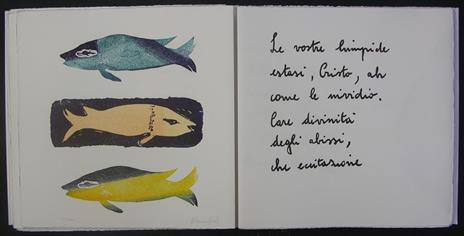 Le vostre limpide
estasi, Cristo, ah
come le invidio.
Care divinità
degli abissi,
che eccitazione